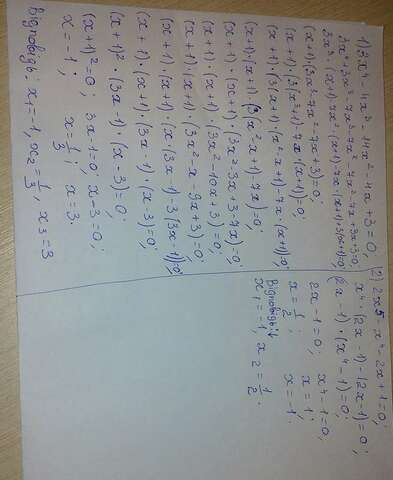 1) 3x⁴ - 4x³ - 14x² - 4x + 3 = 0;
3x⁴ + 3x³ - 7x³ - 7x² - 7x² - 7x + 3x + 3 = 0;
3x³ · (x+1) - 7x² · (x+1) - 7x · (x+1) + 3(x+1) = 0;
(x+1) · (3x³ - 7x² - 7x + 3) = 0;
(x+1) · (3 (x³+1) - 7x · (x+1)) = 0;
(x+1) · (3 (x+1) · (x² - x + 1) - 7x · (x+1)) = 0;
(x+1) · (x+1) · (3 (x² - x + 1) - 7x) = 0;
(x+1) · (x+1) · (3x² - 3x + 3 - 7x) = 0;
(x+1) · (x+1) · (3x² - 10x + 3) = 0;
(x+1) · (x+1) · (3x² - x - 9x + 3) = 0;
(x+1) · (x+1) · (x · (3x - 1) - 3 (3x - 1)) = 0;
(x+1) · (x+1) · (3x - 1) · (x - 3) = 0;
(x+1)² · (3x - 1) · (x - 3) = 0;
(x+1)² = 0; 3x - 1 = 0; x - 3 = 0;
x = -1; x = 1/3; x = 3.
Відповідь: x₁ = -1, x₂ = 1/3, x₃ = 3
2) 2x⁵ - x⁴ - 2x + 1 = 0;
x⁴ · (2x - 1) - (2x - 1) = 0;
(2x - 1) · (x⁴ - 1) = 0;
2x - 1 = 0; x⁴ - 1 = 0;
x = 1/2; x = 1;
x = -1.
Відповідь:
x₁ = -1, x₂ = 1/2.